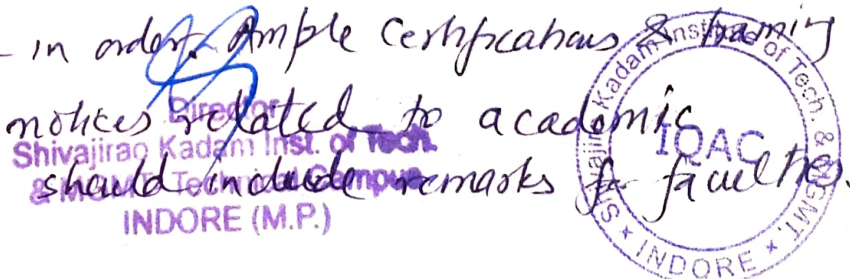 - in order. Ample Certifications & training
notices related to academic
should include remarks for faculties.
Director
Shivajirao Kadam Inst. of Tech.
& MGMT. Technical Campus
INDORE (M.P.)
Shivajirao Kadam Institute of Tech. & MGMT.
IQAC
* INDORE *